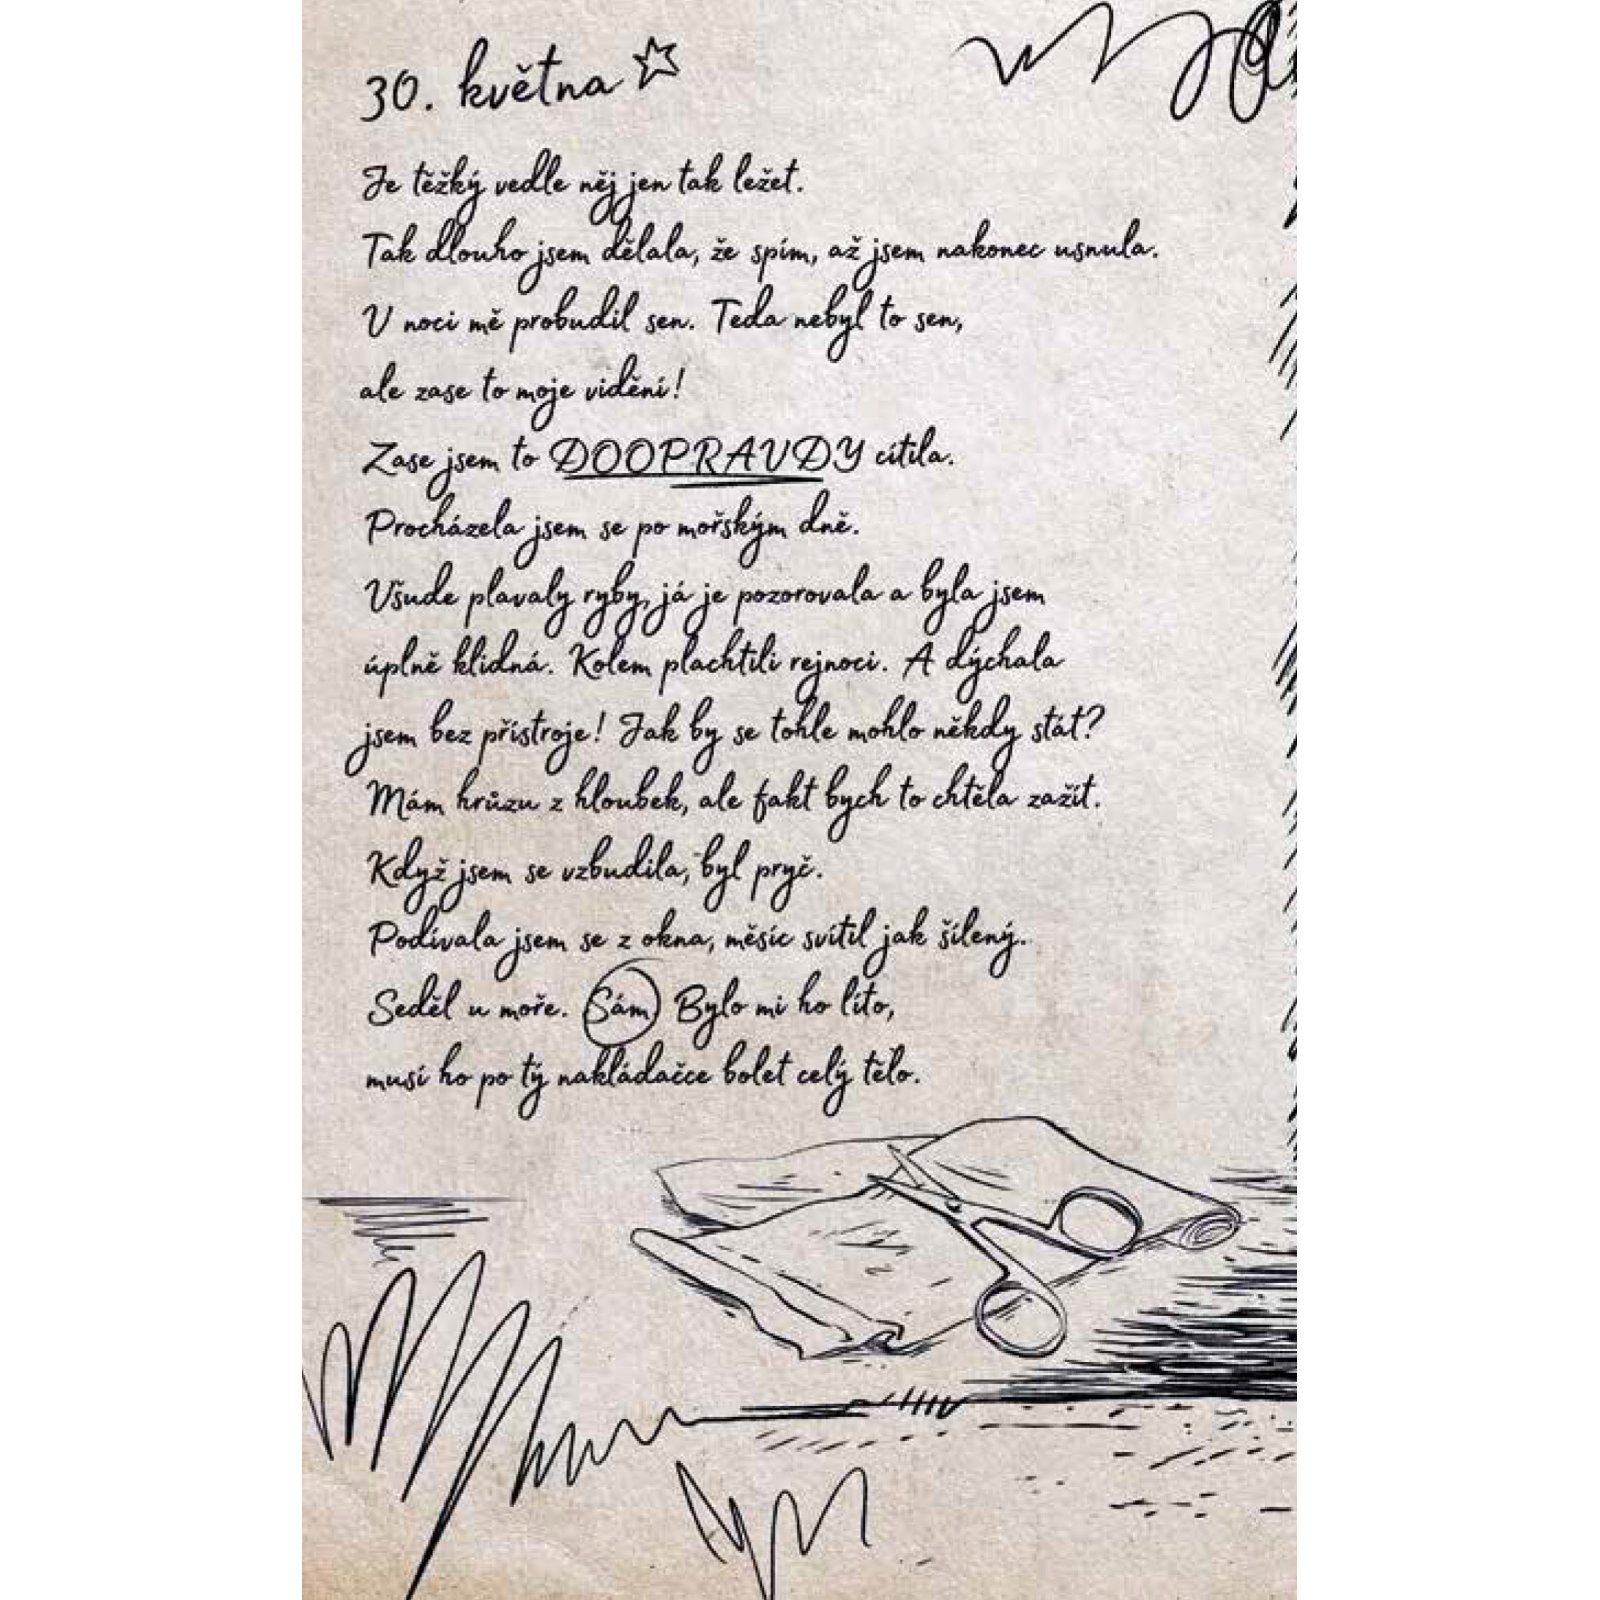 30. května
Je těžký vedle něj jen tak ležet.
Tak dlouho jsem dělala, že spím, až jsem nakonec usnula.
V noci mě probudil sen. Teda nebyl to sen,
ale zase to moje vidění!
Zase jsem to DOOPRAVDY cítila.
Procházela jsem se po mořským dně.
Všude plavaly ryby, já je pozorovala a byla jsem
úplně klidná. Kolem plachtili rejnoci. A dýchala
jsem bez přístroje! Jak by se tohle mohlo někdy stát?
Mám hrůzu z hloubek, ale fakt bych to chtěla zažít.
Když jsem se vzbudila, byl pryč.
Podívala jsem se z okna, měsíc svítil jak šílený.
Seděl u moře. Sám Bylo mi ho líto,
musí ho po tý nakládačce bolet celý tělo.